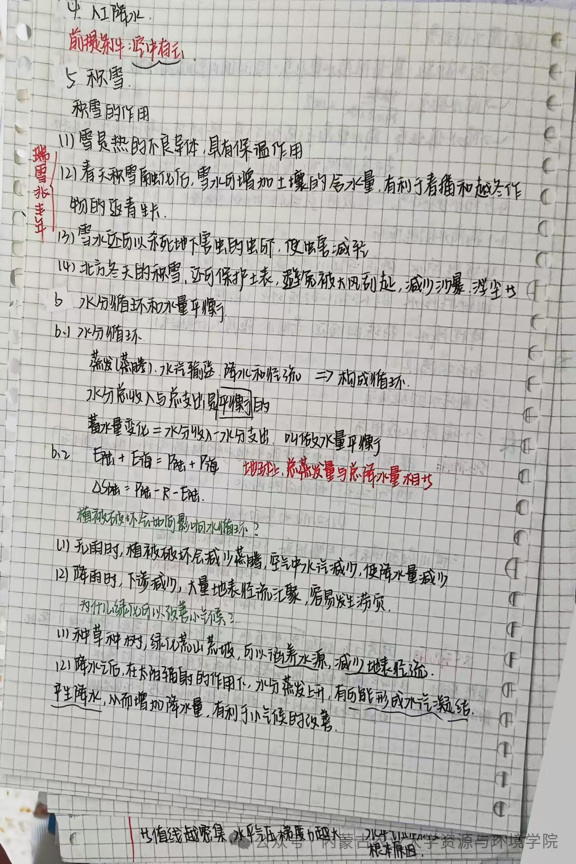 4. 人工降水
前提条件:空中有云
5 积雪.
积雪的作用
瑞雪兆丰年
(1)雪是热的不良导体,具有保温作用
(2)春天积雪融化后,雪水可增加土壤的含水量,有利于春播和越冬作
物的返青生长.
(3)雪水还可以杀死地下害虫的虫卵,使虫害减轻
(4)北方冬天的积雪,还可保护土表,避免被大风刮起,减少沙暴.浮尘
6 水分循环和水量平衡
6.1 水分循环
蒸发(蒸腾).水汽输送.降水和径流 => 构成循环.
水分总收入与总支出是平衡的
蓄水量变化=水分收入-水分支出 叫做水量平衡
6.2 E陆+E海=P陆+P海 地球上,总蒸发量与总降水量相当
ΔS陆=P陆-R-E陆.
植被破坏会如何影响水循环?
(1)无雨时,植被破坏会减少蒸腾,空气中水汽减少,使降水量减少
(2)降雨时,下渗减少,大量地表径流汇聚,容易发生涝灾.
为什么绿化可以改善小气候?
(1)种草种树,绿化荒山荒坡,可以涵养水源,减少地表径流.
(2)降水之后,在太阳辐射的作用下,水分蒸发上升,有可能形成水汽凝结.
产生降水,从而增加降水量,有利于小气候的改善.
等值线越密集,水平气压梯度力越大
根本原因
公众号 内蒙古 大学资源与环境学院